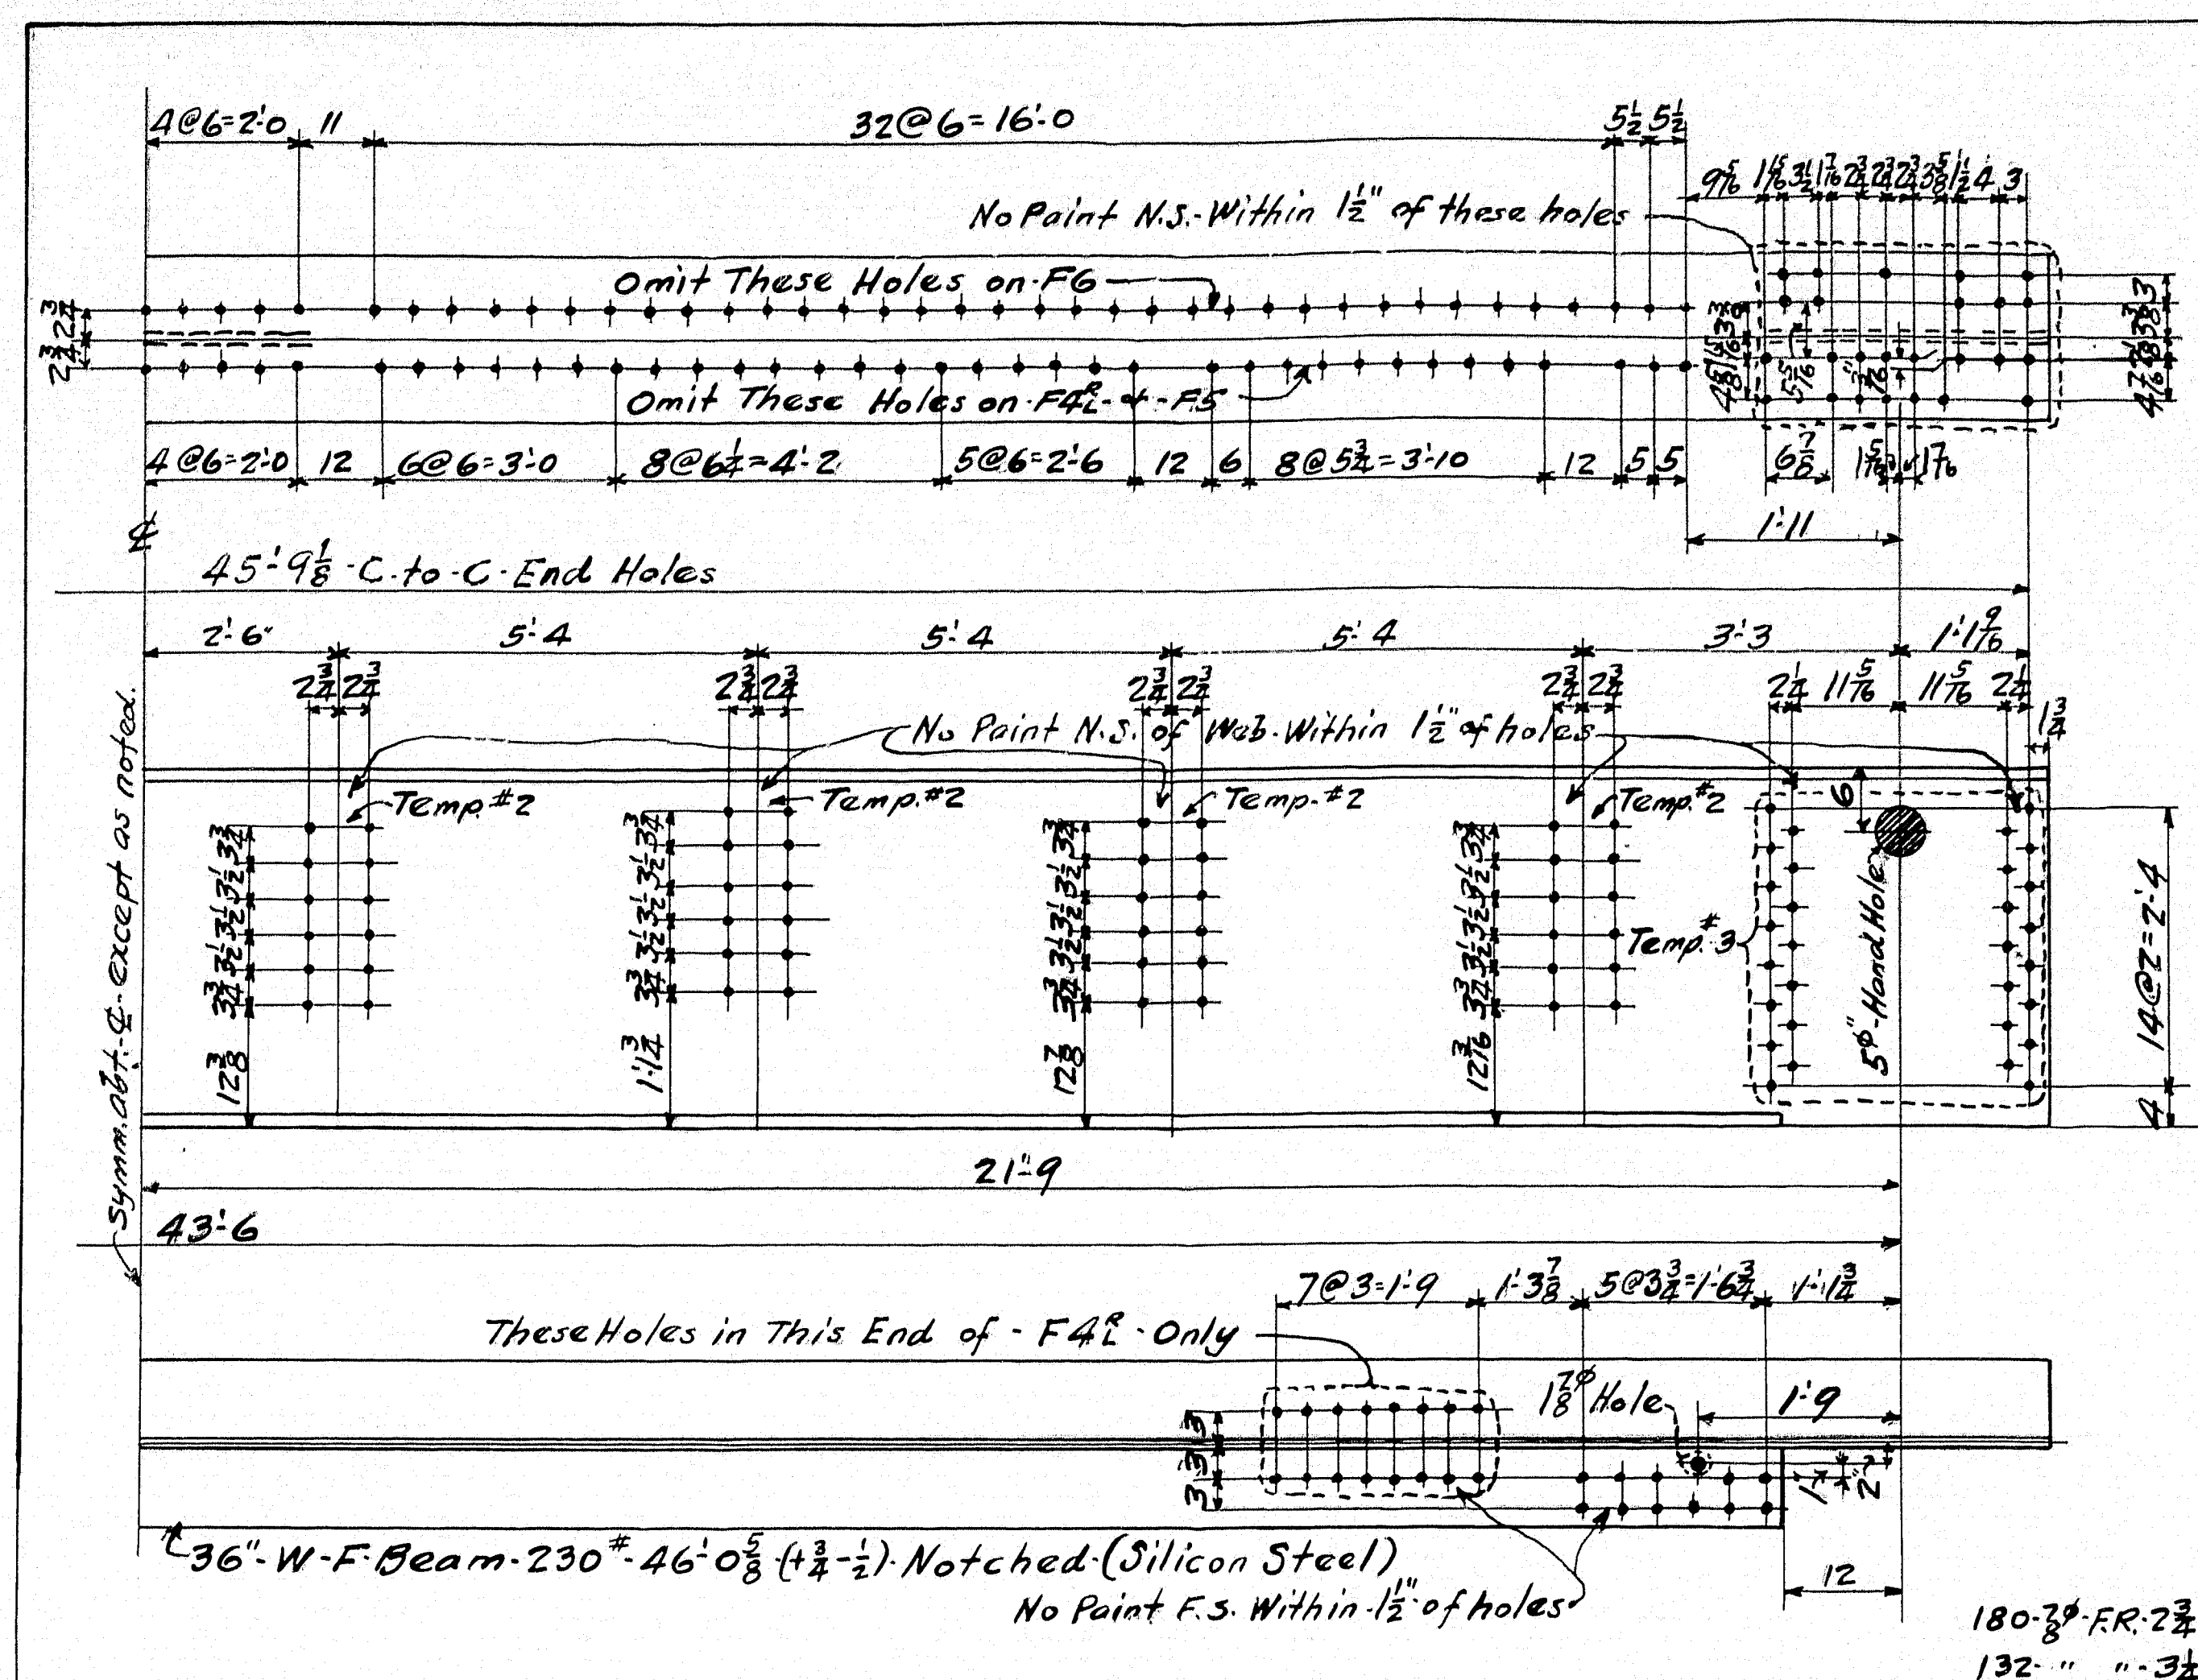 4@6=2'-0 11 32@6=16'-0 5½ 5½
9 5/16 1 5/16 3½ 1 7/16 2¾ 2¾ 2¾ 3⅝ 1½ 4 3
No Paint N.S.-Within 1½" of these holes
Omit These Holes on-F6
2¾ 2¾
3 3⅜ 4 7/16
Omit These Holes on-F4 R L & -F5
4@6=2'-0 12 6@6=3'-0 8@6¼=4'-2 5@6=2'-6 12 6 8@5¾=3'-10 12 5 5
6⅞ 1 5/16 1 7/16
1'-11
℄
45'-9⅛-C.to-C-End Holes
2'-6" 5'-4 5'-4 5'-4 3'-3 1'-1 9/16
2¾ 2¾ 2¾ 2¾ 2¾ 2¾ 2¾ 2¾ 2¼ 11 5/16 11 5/16 2¼
1¾
No Paint N.S. of Web-Within 1½" of holes
Temp.#2 Temp.#2 Temp-#2 Temp.#2
6
3¾ 3½ 3½ 3½ 3¾ 12⅜
3¾ 3½ 3½ 3½ 3¾ 1'-1¾
3¾ 3½ 3½ 3½ 3¾ 12⅞
3¾ 3½ 3½ 3½ 3¾ 12 3/16
Temp.#3
5"ϕ-Hand Hole
14@2=2'-4
4
Symm.abt.-℄-except as noted.
21'-9
43'-6
7@3=1'-9 1'-3⅞ 5@3¾=1'-6¾ 1'-1¾
These Holes in This End of - F4 R L -Only
1⅞ϕ Hole
1'-9
3 3 3
2"
36"-W-F-Beam-230#-46'-0⅝ (+¾-½)-Notched-(Silicon Steel)
12
No Paint F.S. Within-1½"-of holes
180-⅞ϕ-F.R.-2¾
132- " "-3¼